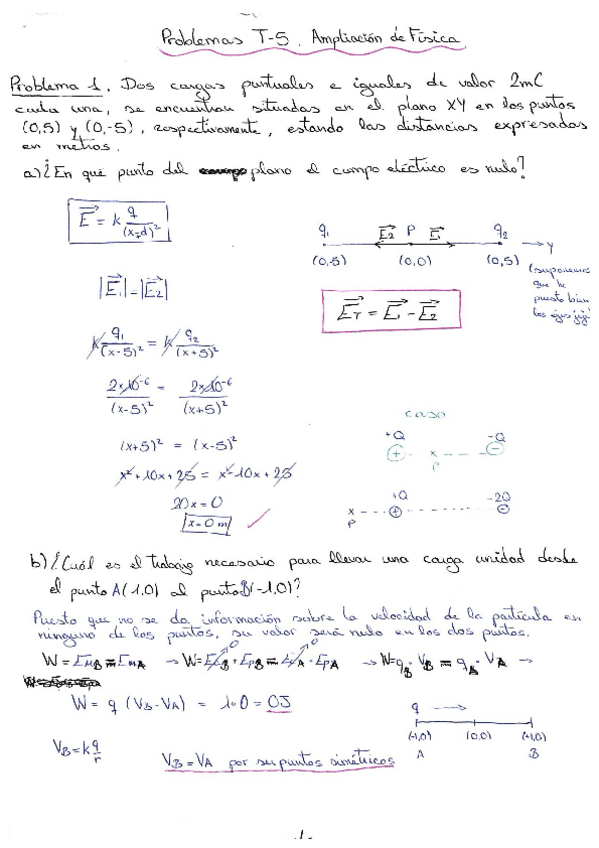 Problemas T-5. Ampliación de Física
Problema 1. Dos cargas puntuales e iguales de valor 2mC
cada una, se encuentran situadas en el plano XY en los puntos
(0,5) y (0,-5), respectivamente, estando las distancias expresadas
en metros.
a) ¿En qué punto del plano el campo eléctrico es nulo?
E = k q/(x-d)²
q1 E2 P E1 q2 y
(0,-5) (0,0) (0,5)
(suponemos
que he
puesto bien
los ejes jiji)
|E1| = |E2|
ET = E1 - E2
k q1/(x-5)² = k q2/(x+5)²
2x10⁻⁶/(x-5)² = 2x10⁻⁶/(x+5)²
caso
(x+5)² = (x-5)²
+Q -Q
+ x P -
x² + 10x + 25 = x² - 10x + 25
20x = 0
x = 0 m
+Q -2Q
x P + -
b) ¿Cuál es el trabajo necesario para llevar una carga unidad desde
el punto A(1,0) al punto B(-1,0)?
Puesto que no se da información sobre la velocidad de la partícula en
ninguno de los puntos, su valor será nulo en los dos puntos.
W = EMB = EMA → W = ECB + EPB = ECA - EPA → W = qB · VB = qA · VA →
W = q (VB - VA) = 1·0 = 0J
q →
(-1,0) (0,0) (+1,0)
A B
VB = k q/r
VB = VA por ser puntos simétricos
-1-